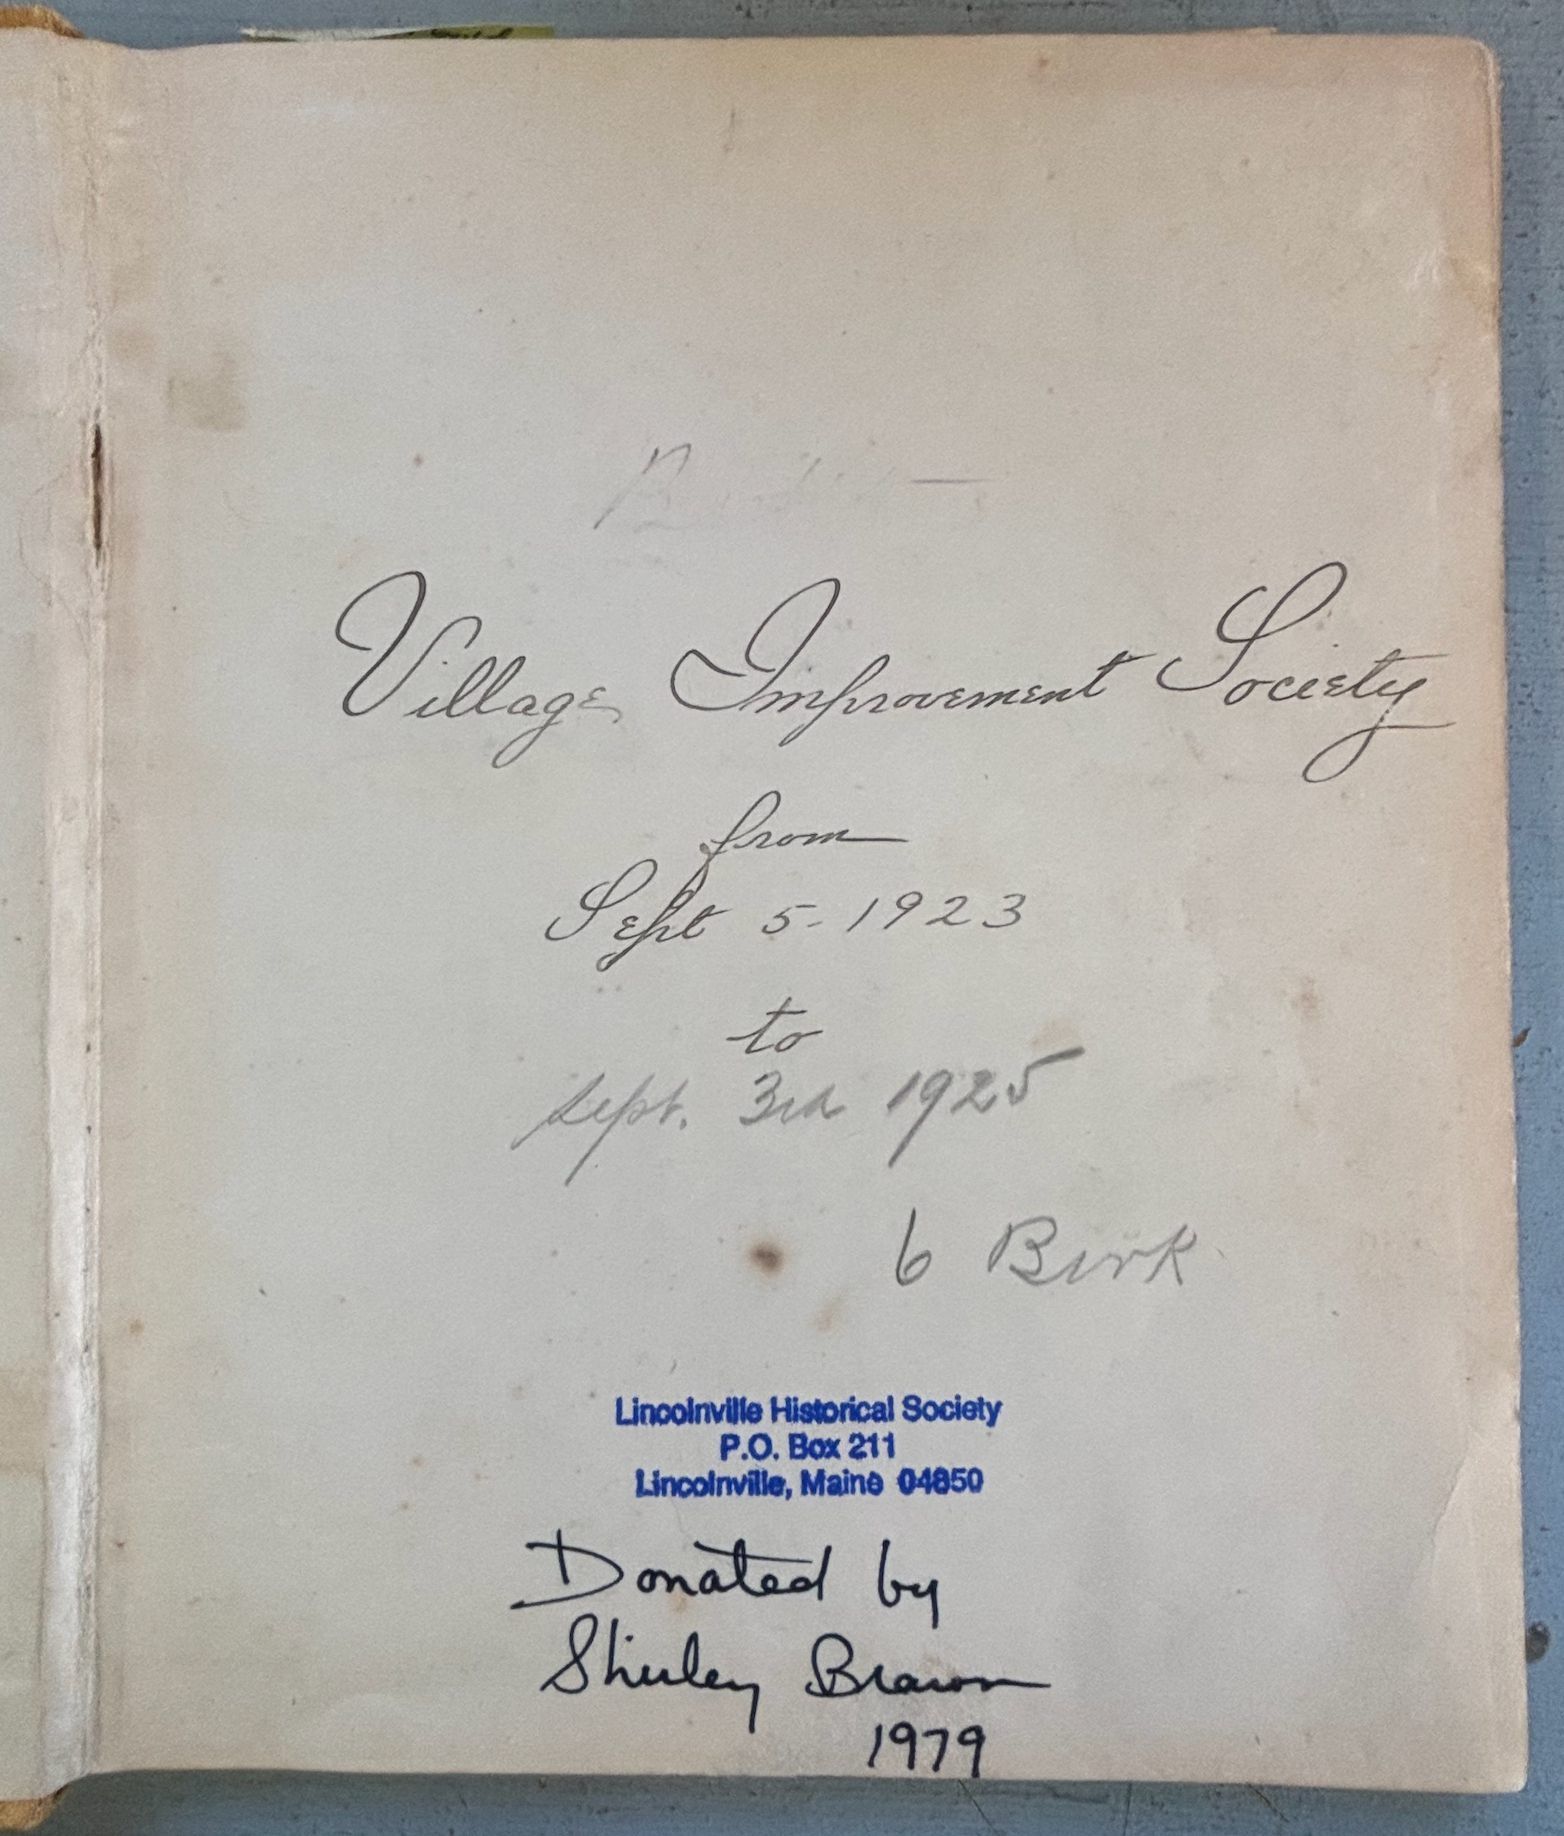 Village Improvement Society
from
Sept 5-1923
to
Sept. 3rd 1925
6
Lincolnville Historical Society
P.O. Box 211
Lincolnville, Maine 04850
Donated by
Shirley Brawn
1979